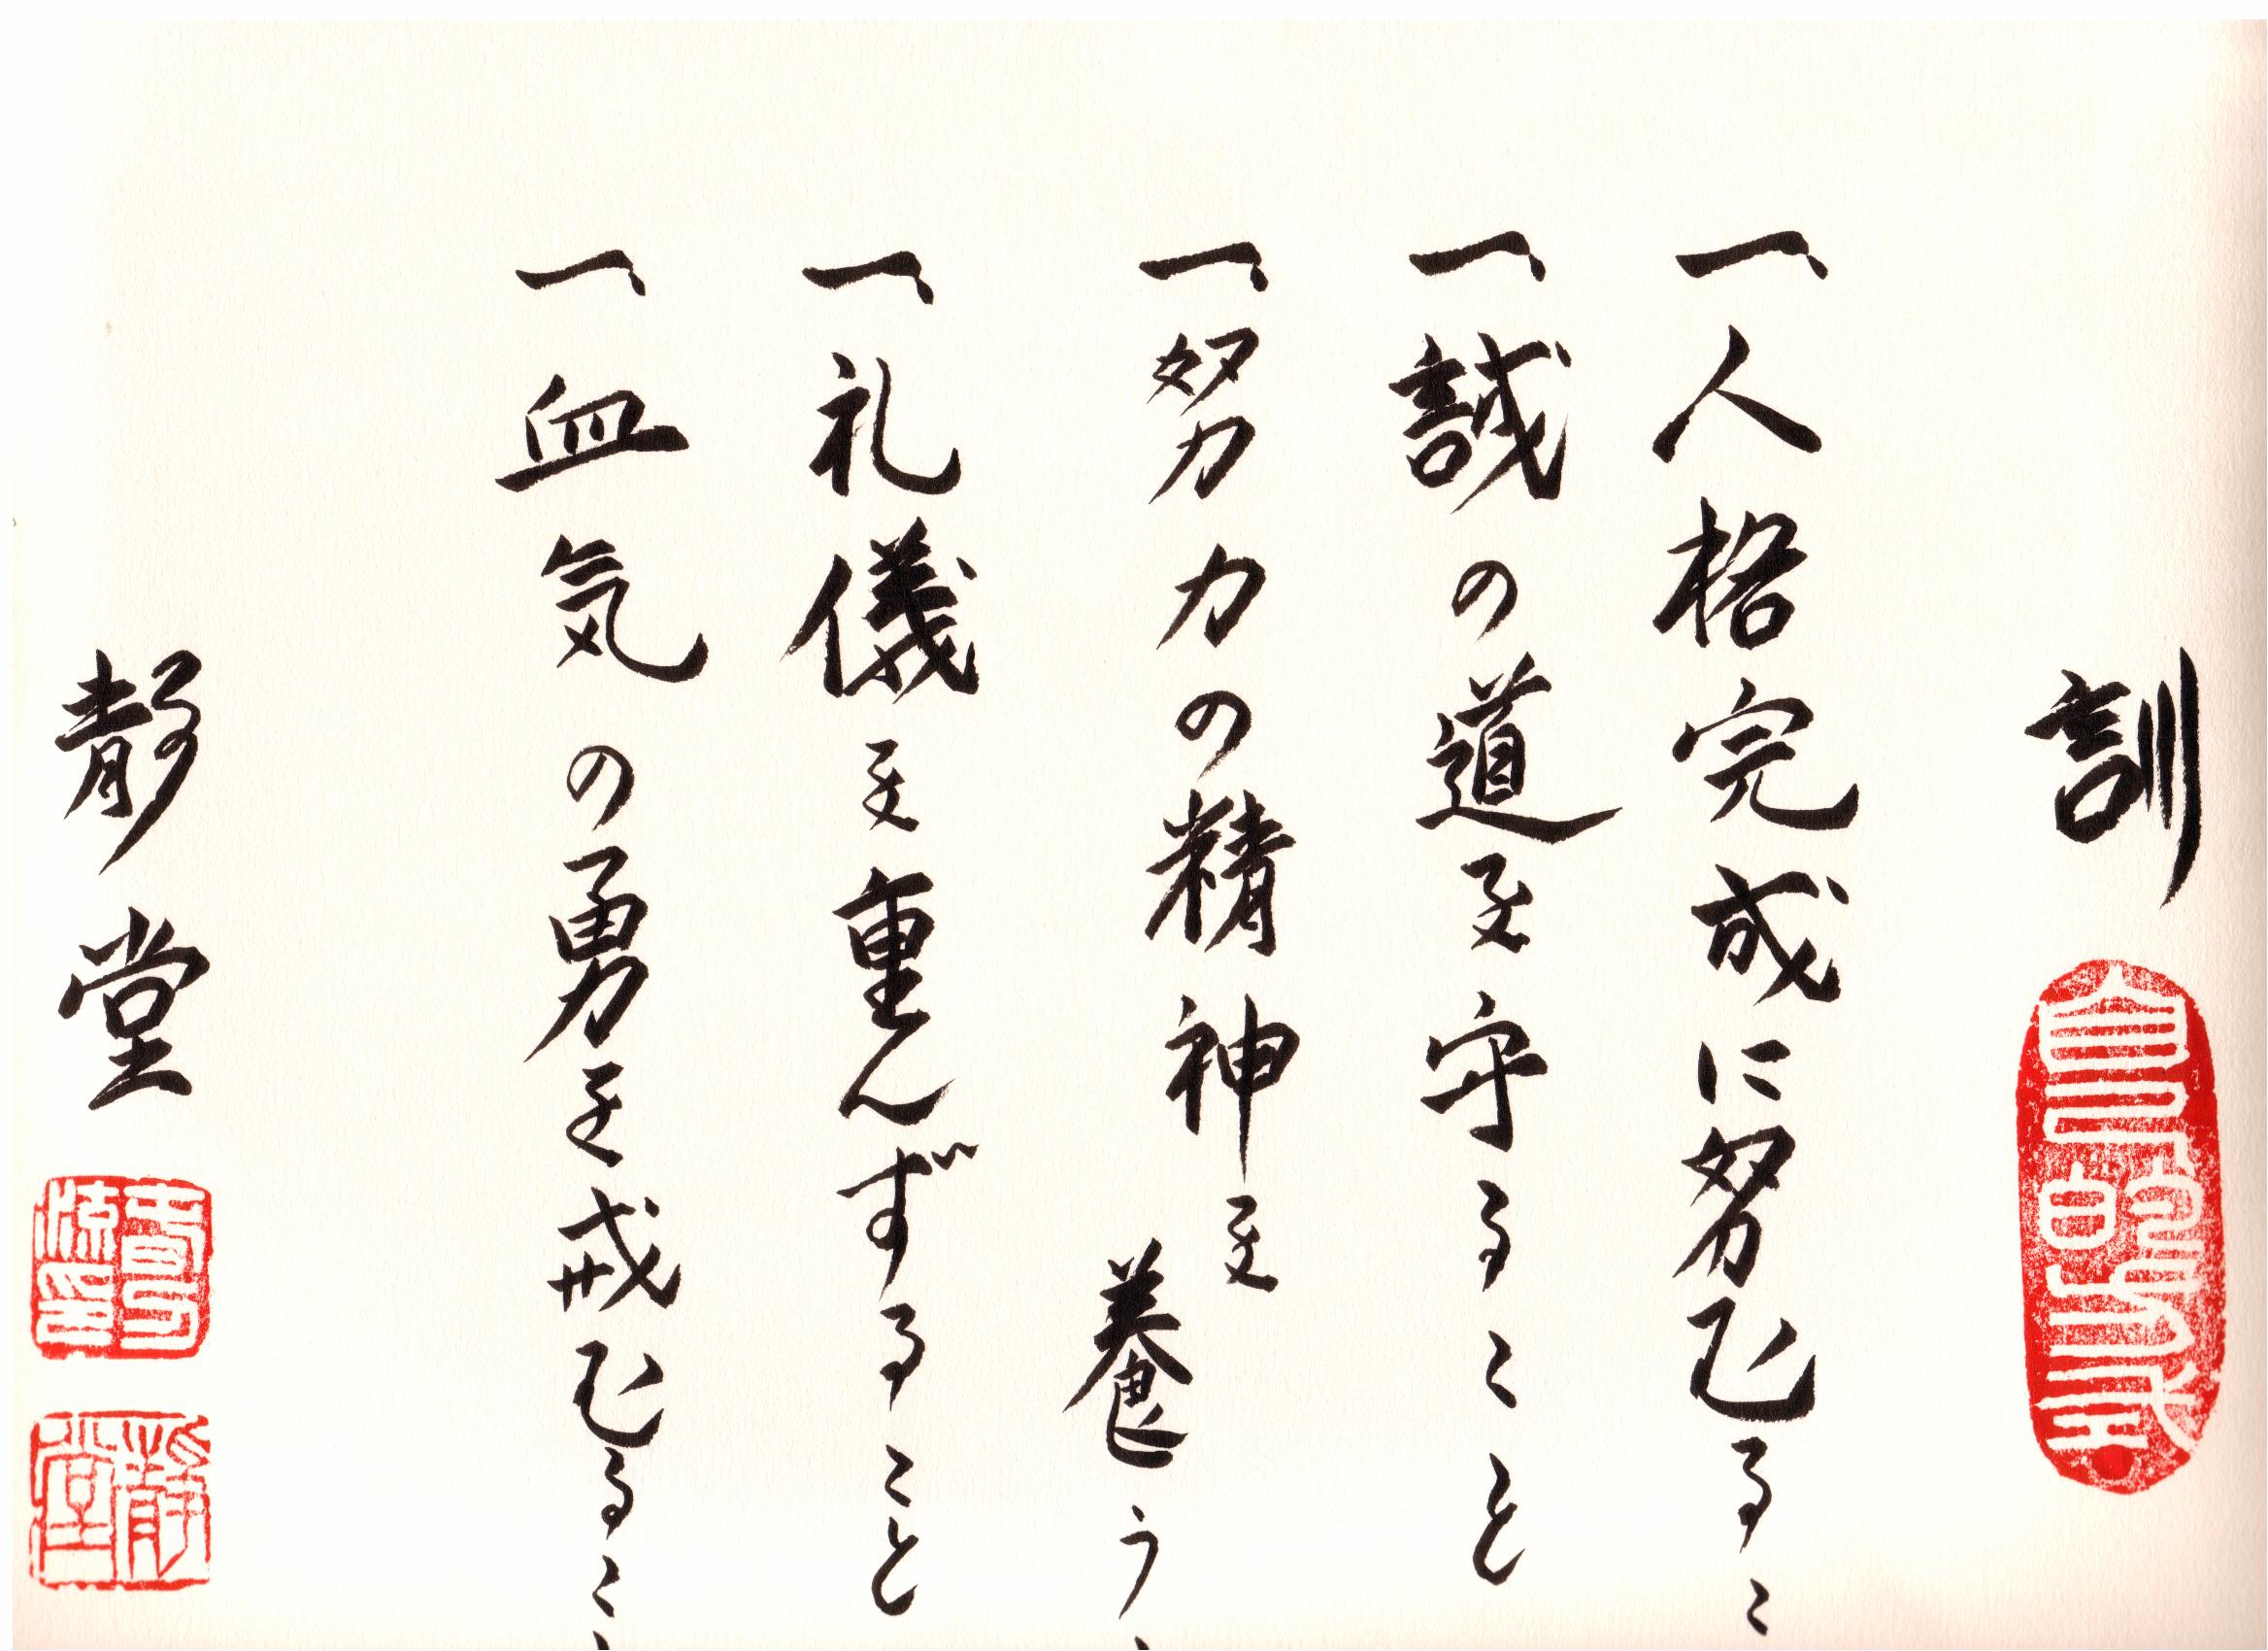 訓
一、人格完成に努むるこ
一、誠の道を守ること
一、努力の精神を養う
一、礼儀を重んずること
一、血気の勇を戒むるこ
静堂
静堂